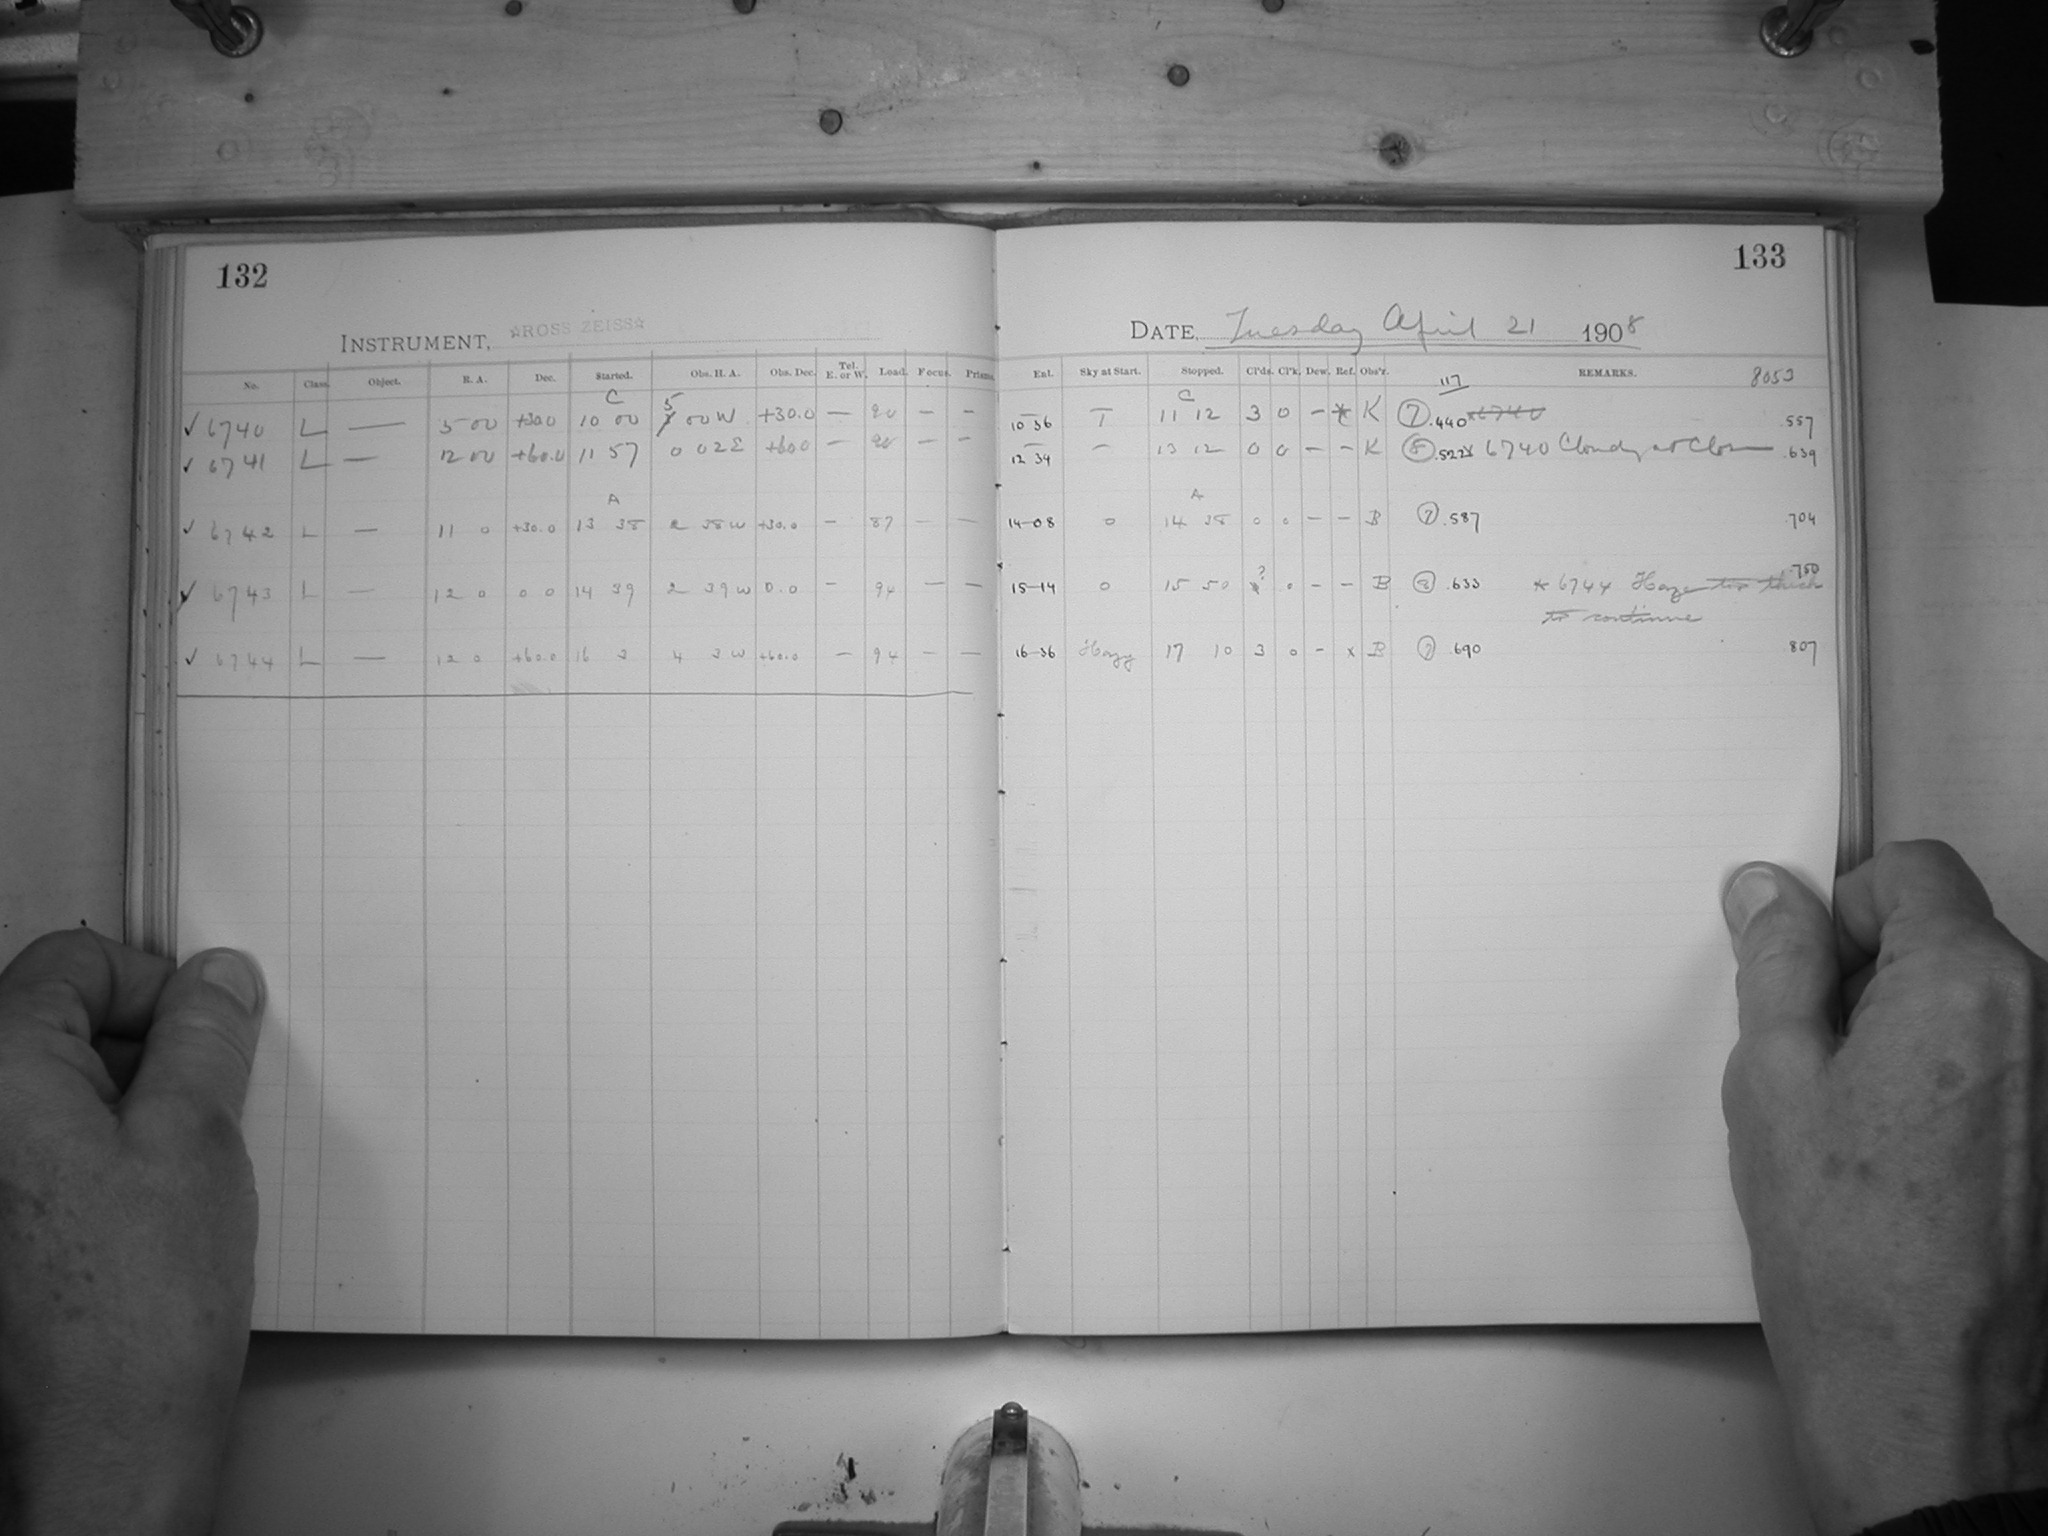 132
INSTRUMENT, ☆ROSS ZEISS☆
No. Class. Object. R. A. Dec. Started. Obs. H. A. Obs. Dec. Tel. E. or W. Load. Focus. Prisms.
C
✓ 6740 L — 5 00 +30.0 10 00 5 00 W +30.0 — 90 — —
✓ 6741 L — 12 00 +60.0 11 57 0 02 E +60.0 — 90 — —
A
✓ 6742 L — 11 0 +30.0 13 38 2 38 W +30.0 — 87 — —
✓ 6743 L — 12 0 0 0 14 39 2 39 W 0.0 — 94 — —
✓ 6744 L — 12 0 +60.0 16 3 4 3 W +60.0 — 94 — —
133
DATE, Tuesday April 21 1908
Ent. Sky at Start. Stopped. Cl'ds. Cl'k. Dew. Ref. Obs'r. REMARKS. 8053
117
C
10 36 T 11 12 3 0 — * K 7 .440 *6740 .557
12 34 — 13 12 0 0 — — K 8 .522 * 6740 Cloudy at Close .639
A
14-08 0 14 38 0 0 — — B 7 .587 .704
?
15-14 0 15 50 * 0 — — B 8 .633 * 6744 Haze too thick .750
to continue
16-36 Hazy 17 10 3 0 — x B 7 .690 .807